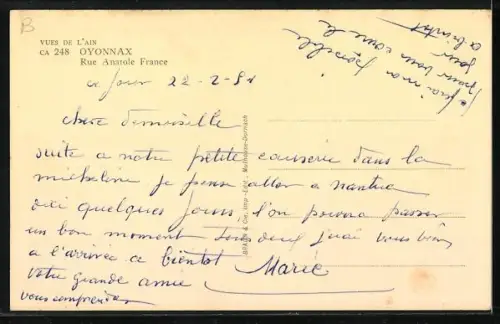 B
VUES DE L'AIN
CA 248 OYONNAX
Rue Anatole France
ce Jour 22-2-51
chere demoiselle
suite a notre petite causerie dans la
micheline je pense aller a nantua
dici quelques Jours, l'on pourra passer
un bon moment tous deux j'irai vous voir
a l'arrivée a bientôt Marie
votre grande amie
vous comprendrez
je ferai mon possible
pour vous
jour
a bientôt
BRAUN & Cie, Imp.-Édit., Mulhouse-Dornach